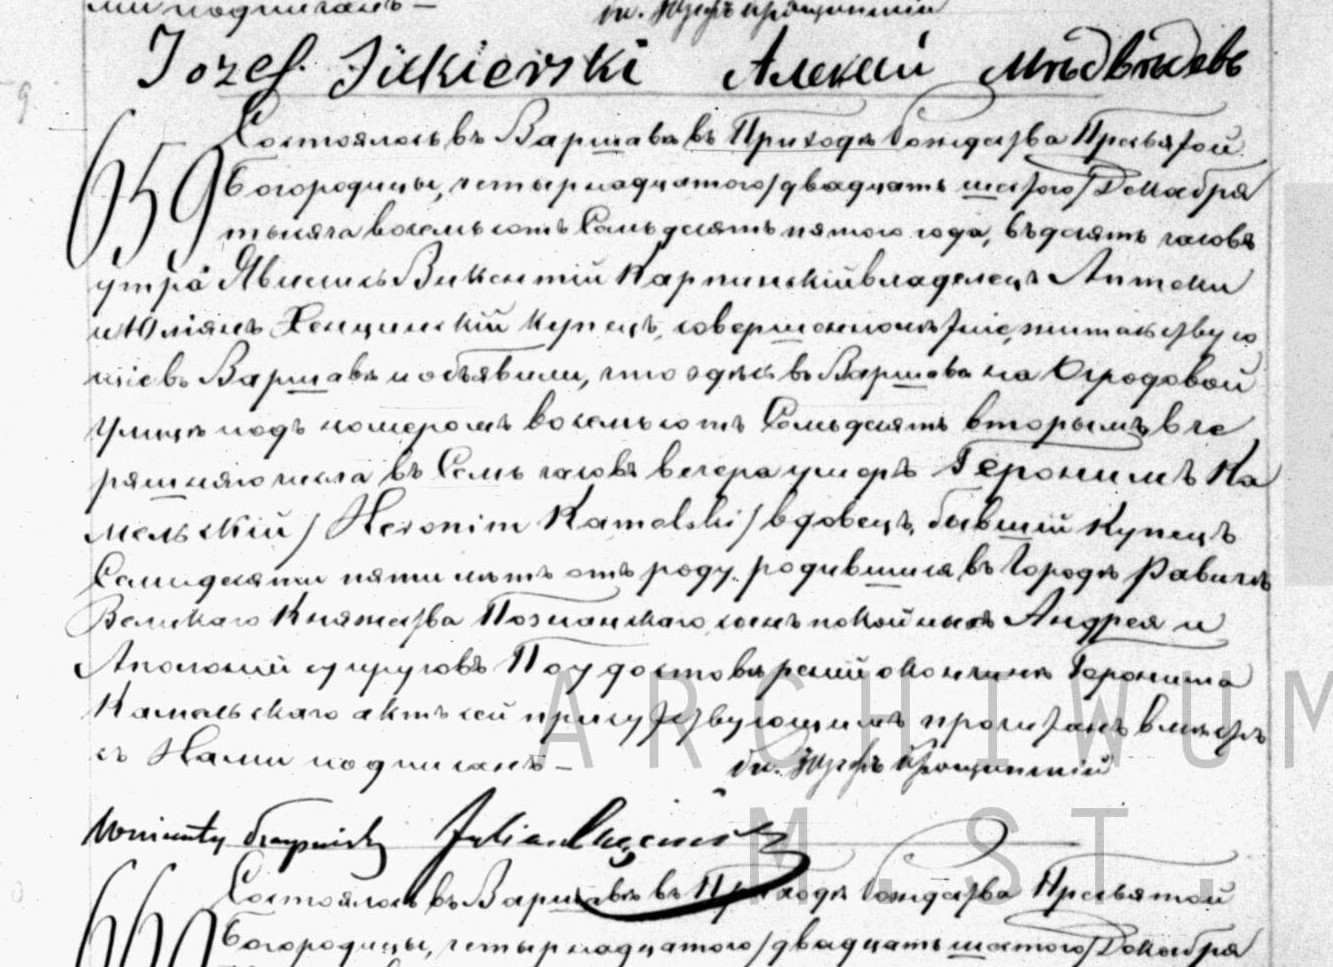 Jozef. Żukierski Алексей Медвѣдевъ
659
Состоялось въ Варшавѣ въ Приходѣ Рождества Пресвятой
Богородицы, четырнадцатого/двадцать шестого/Декабря
тысяча восемьсотъ Семьдесятъ пятого года, въ десять часовъ
утра Явились Викентій Карпинскій владелецъ Аптеки
и Юліянъ Хенцинскій Купецъ, совершеннолѣтніе, жительствую
щіе въ Варшавѣ и объявили, что здѣсь въ Варшавѣ на Огродовой
Улицѣ подъ номеромъ восемьсотъ Семьдесятъ вторымъ, вче
рашняго числа въ Семь часовъ вечера умеръ Геронимъ Ка
мельскій / Heronim Kamelski / вдовецъ, бывшій Купецъ
Семидесяти пяти лѣтъ отъ роду, родившійся въ Городѣ Равичѣ
Великаго Княжества Познанскаго, сынъ покойныхъ Андрея и
Аполоніи супруговъ По удостовѣреніи о кончинѣ Геронима
Камельскаго актъ сей присутствующимъ прочитанъ вмѣстѣ
съ Нами подписанъ –
Julian
660
Состоялось въ Варшавѣ въ Приходѣ Рождества Пресвятой
Богородицы, четырнадцатого/двадцать шестого/Декабря
ARCHIWUM
M. ST.